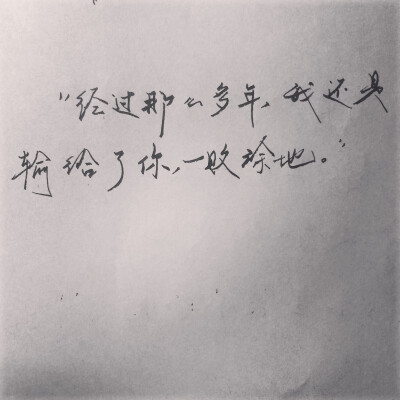 “经过那么多年，我还是
输给了你，一败涂地。”